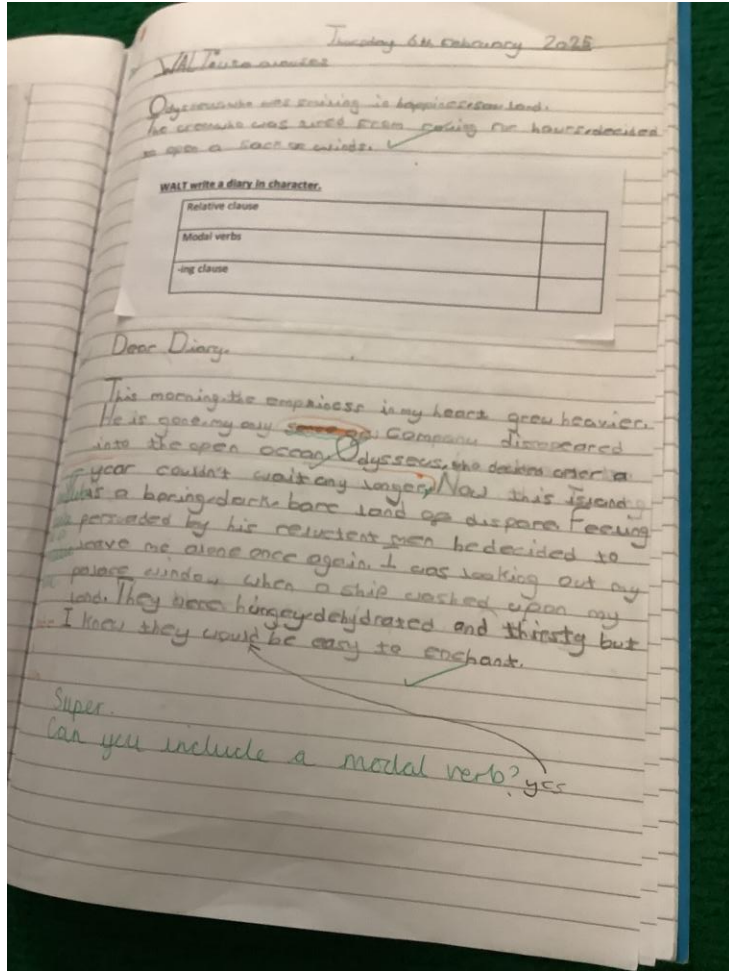 Thursday 6th February 2025
WALT use clauses
Odysseus, who was smiling in happiness, saw land.
The crew, who was tired from rowing for hours, decided
to open a sack of winds.
WALT write a diary in character.
Relative clause
Modal verbs
-ing clause
Dear Diary,
This morning, the emptiness in my heart grew heavier.
He is gone, my only company disapeared
into the open occean. Odysseus, who decided after a
year couldn't wait any longer. Now this island
is a boring, dark, bare land of dispare. Feeling
persuaded by his reluctent men he decided to
leave me, alone once again. I was looking out my
palace window when a ship washed upon my
land. They were hungey, dehydrated and thirsty but
I knew they would be easy to enchant.
Super.
Can you include a modal verb? yes